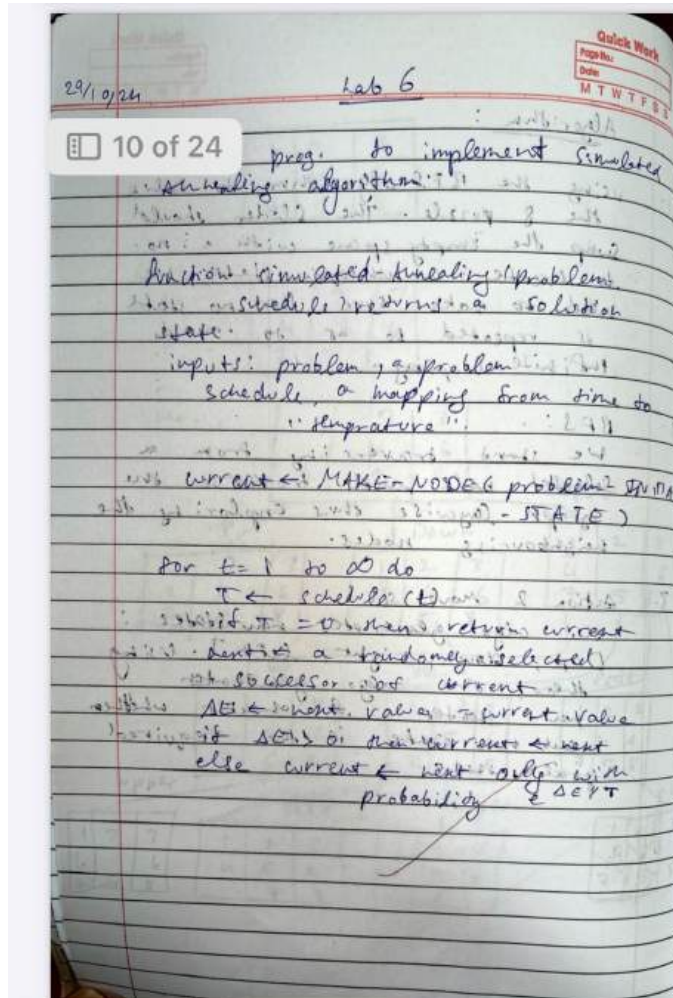 Quick Work
Page No.:
Date:
M T W T F S S
29/10/24
Lab 6
10 of 24
prog. to implement Simulated
Annealing algorithm
function simulated-Annealing (problem,
schedule) returns a solution
state.
inputs: problem, a problem
schedule, a mapping from time to
"temprature"
current ← MAKE-NODE( problem -
- STATE )
for t = 1 to ∞ do
T ← schedule (t)
if T = 0 then return current
next ← a randomly selected
successor of current
ΔE ← next value - current value
if ΔE > 0 then current ← next
else current ← next only with
probability e^ΔE/T